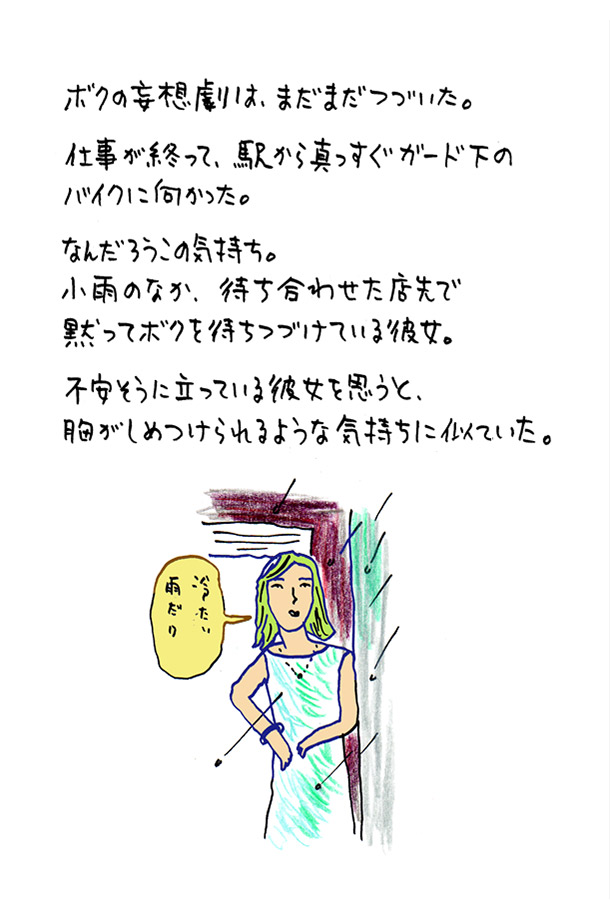 ボクの妄想劇は、まだまだつづいた。
仕事が終って、駅から真っすぐガード下の
バイクに向かった。
なんだろうこの気持ち。
小雨のなか、待ち合わせた店先で
黙ってボクを待ちつづけている彼女。
不安そうに立っている彼女を思うと、
胸がしめつけられるような気持ちに似ていた。
冷たい
雨だり